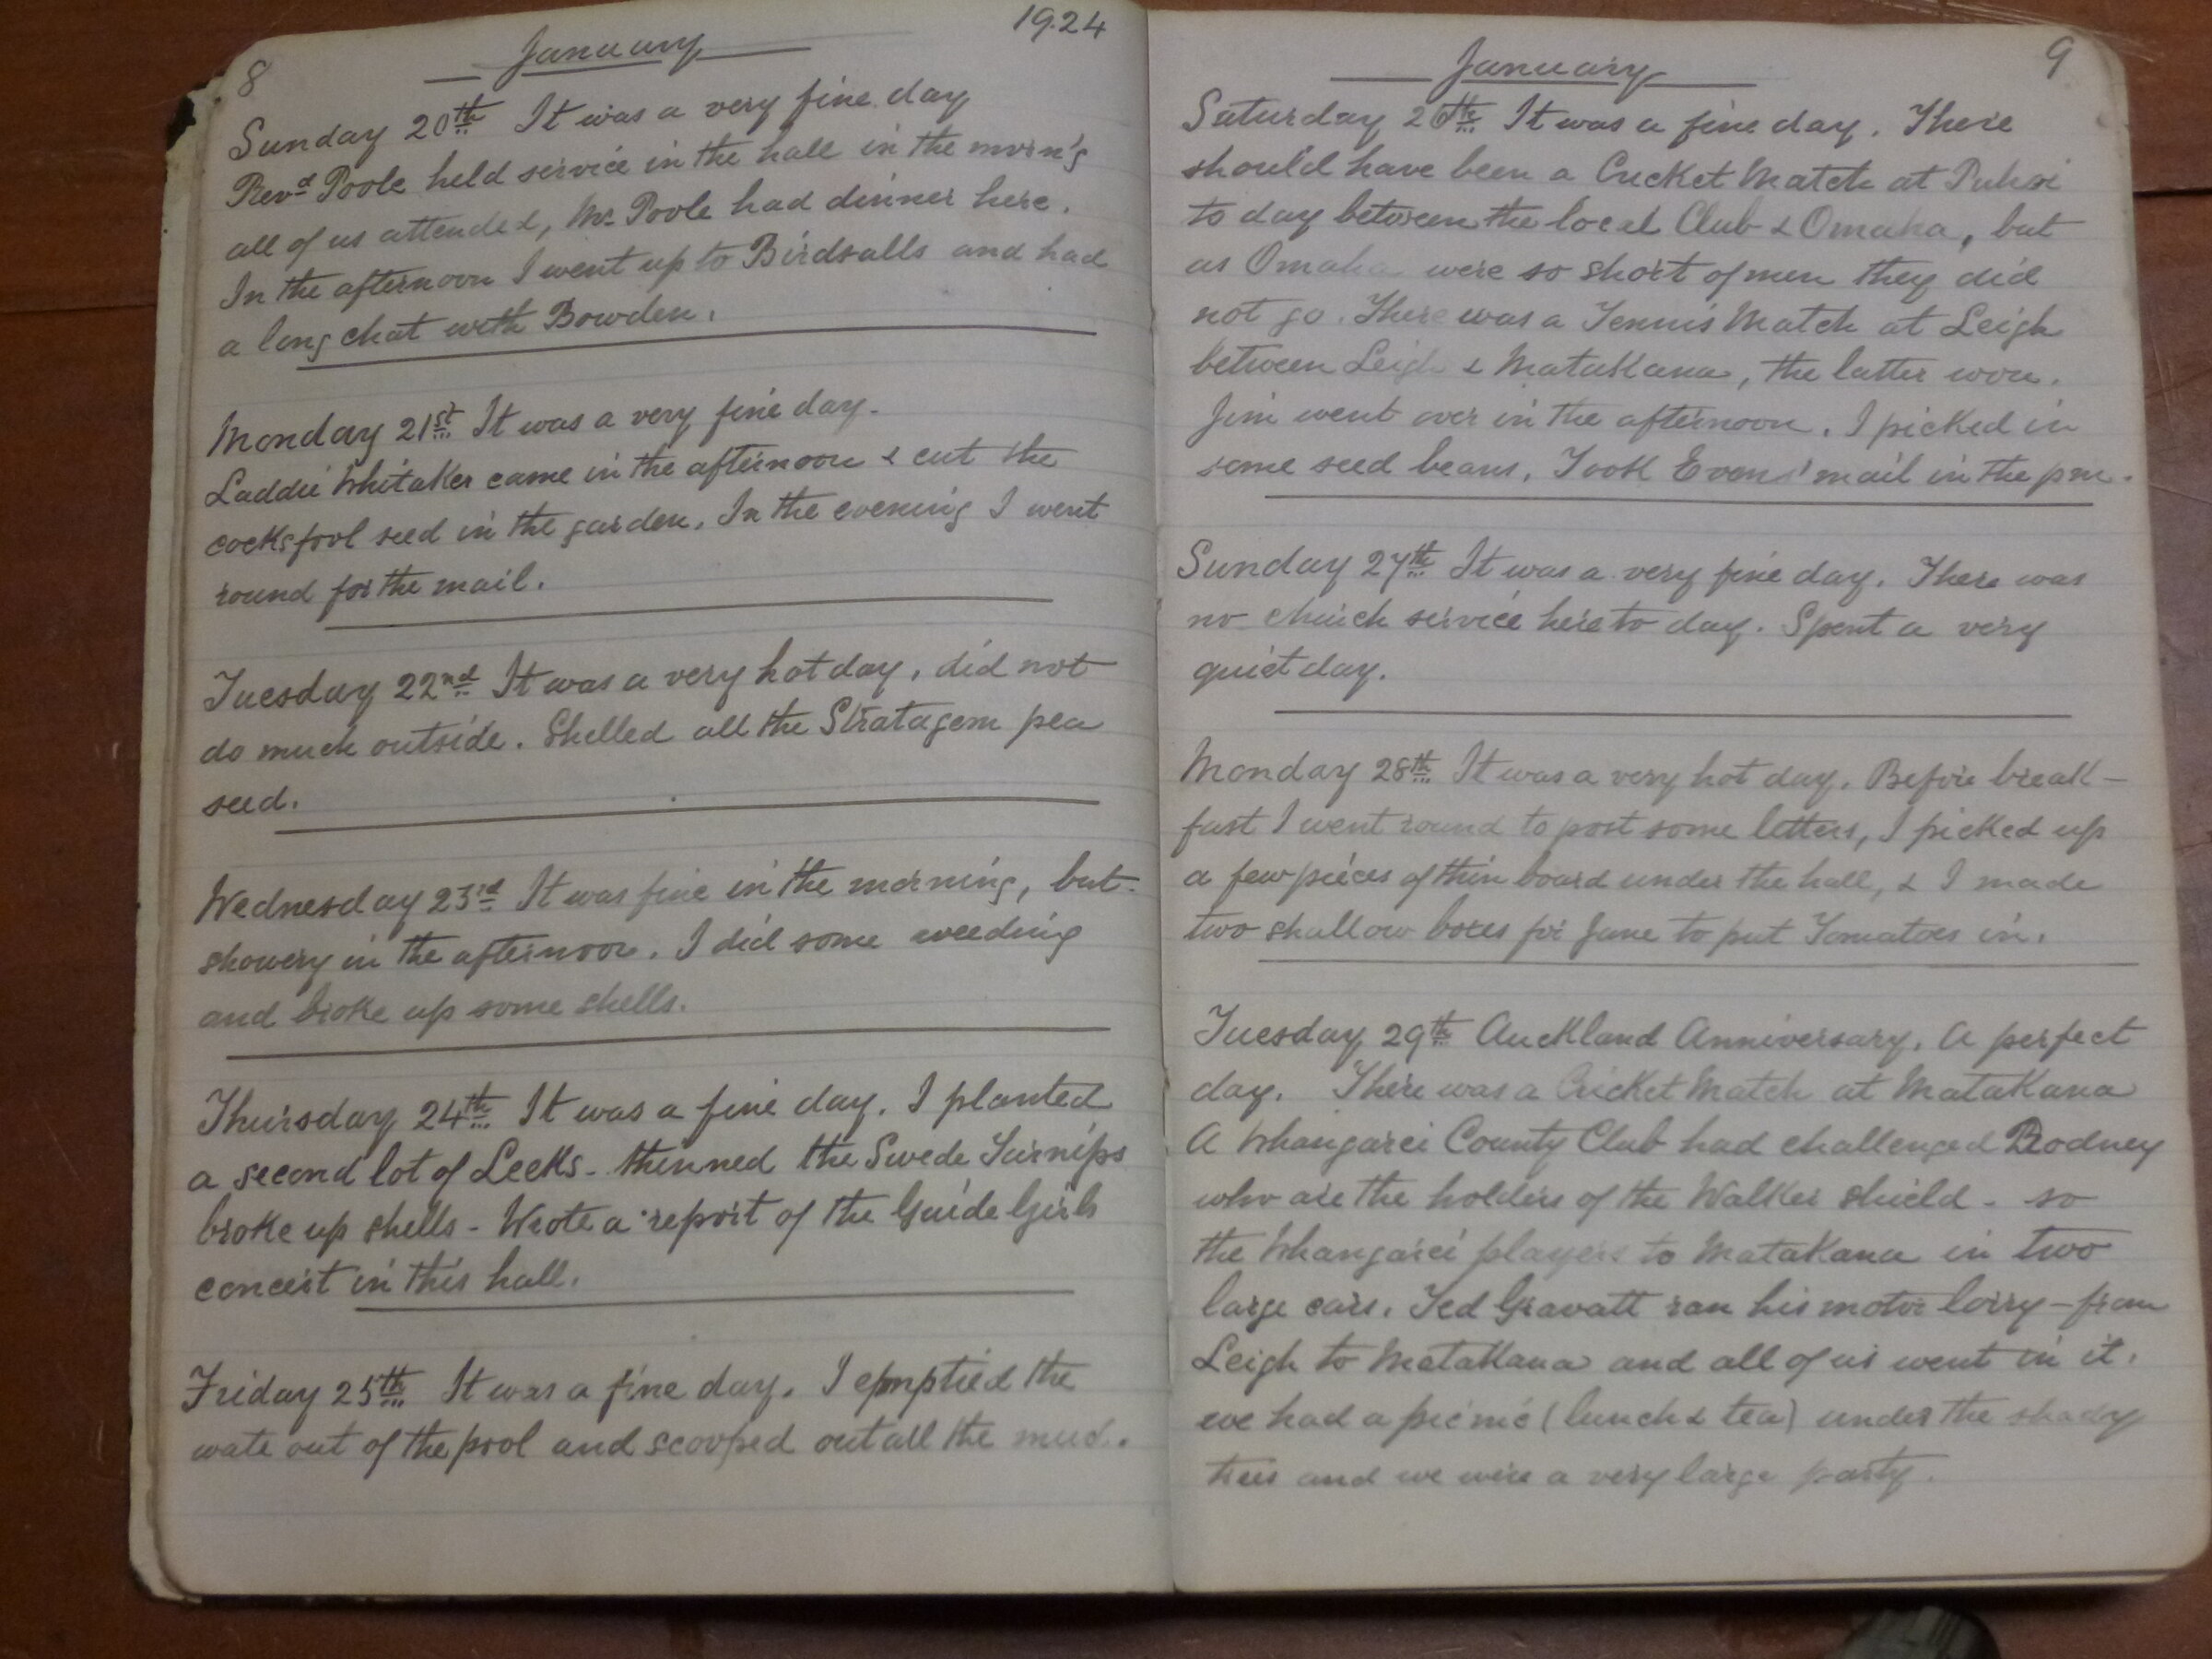 8 January 1924
Sunday 20th It was a very fine day
Revd Poole held service in the hall in the morn'g
all of us attended, Mr Poole had dinner here.
In the afternoon I went up to Birdsalls and had
a long chat with Bowden.
Monday 21st It was a very fine day.
Laddie Whitaker came in the afternoon & cut the
cocksfool seed in the garden. In the evening I went
round for the mail.
Tuesday 22nd It was a very hot day, did not
do much outside. Shelled all the Stratagem pea
seed.
Wednesday 23rd It was fine in the morning, but
showery in the afternoon. I did some weeding
and broke up some shells.
Thursday 24th It was a fine day. I planted
a second lot of Leeks - thinned the Swede Turnips
broke up shells - Wrote a report of the Guide Girls
concert in this hall.
Friday 25th It was a fine day. I emptied the
wate out of the pool and scooped out all the mud.
January 9
Saturday 26th It was a fine day. There
should have been a Cricket Match at Puhoi
to day between the local Club & Omaha, but
as Omaha were so short of men they did
not go. There was a Tennis Match at Leigh
between Leigh & Matakana, the latter won.
Jim went over in the afternoon. I picked in
some seed beans. Took Evans' mail in the pm.
Sunday 27th It was a very fine day. There was
no church service here to day. Spent a very
quiet day.
Monday 28th It was a very hot day. Before break-
fast I went round to post some letters, I picked up
a few pieces of thin board under the hall, & I made
two shallow boxes for June to put Tomatoes in.
Tuesday 29th Auckland Anniversary. A perfect
day. There was a Cricket Match at Matakana
A Whangarei County Club had challenged Rodney
who are the holders of the Walker shield - so
the Whangarei players to Matakana in two
large cars. Ted Gravatt ran his motor lorry - from
Leigh to Matakana and all of us went in it.
we had a picnic (lunch & tea) under the shady
trees and we were a very large party.